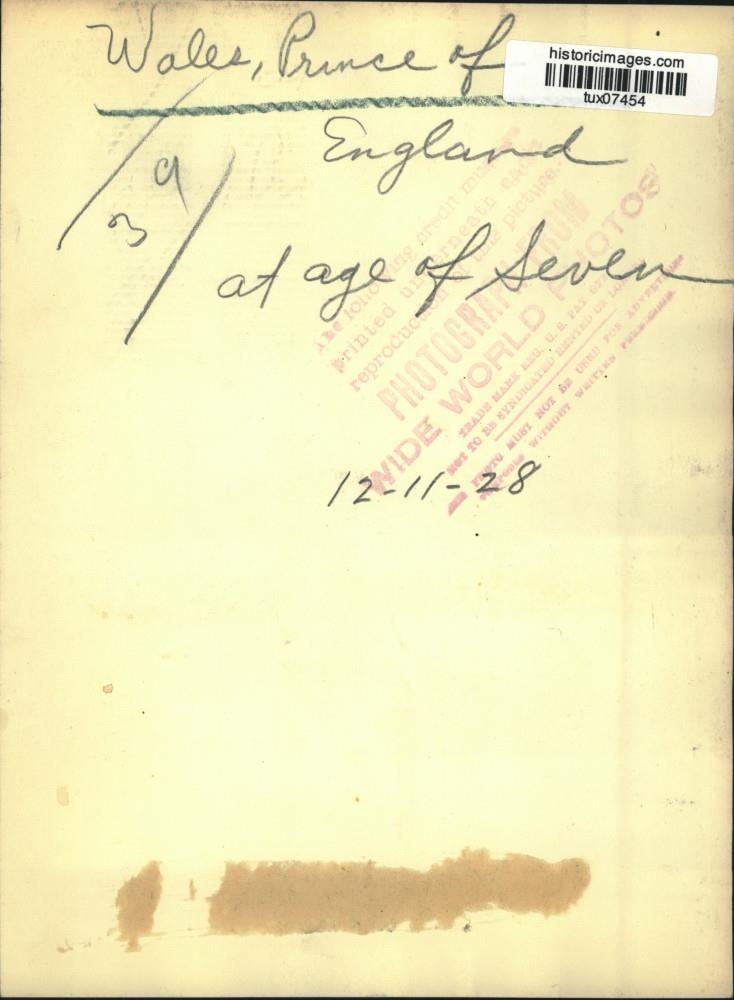 Wales, Prince of
historicimages.com
tux07454
England
9
3
at age of Seven
The following credit must be
printed underneath each
reproduction of this picture.
PHOTOGRAPH FROM
WIDE WORLD PHOTOS
TRADE MARK REG. U. S. PAT. OFF.
NOT TO BE SYNDICATED RENTED OR LOANED
PHOTO MUST NOT BE USED FOR
WITHOUT WRITTEN
12-11-28